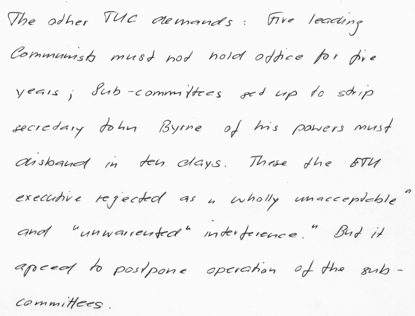 The other TUC demands : Five leading
Communists must not hold office for five
years ; Sub-committees set up to strip
secretary John Byrne of his powers must
disband in ten days. These the ETU
executive rejected as " wholly unacceptable "
and "unwarrented" interference." But it
agreed to postpone operation of the sub-
committees.